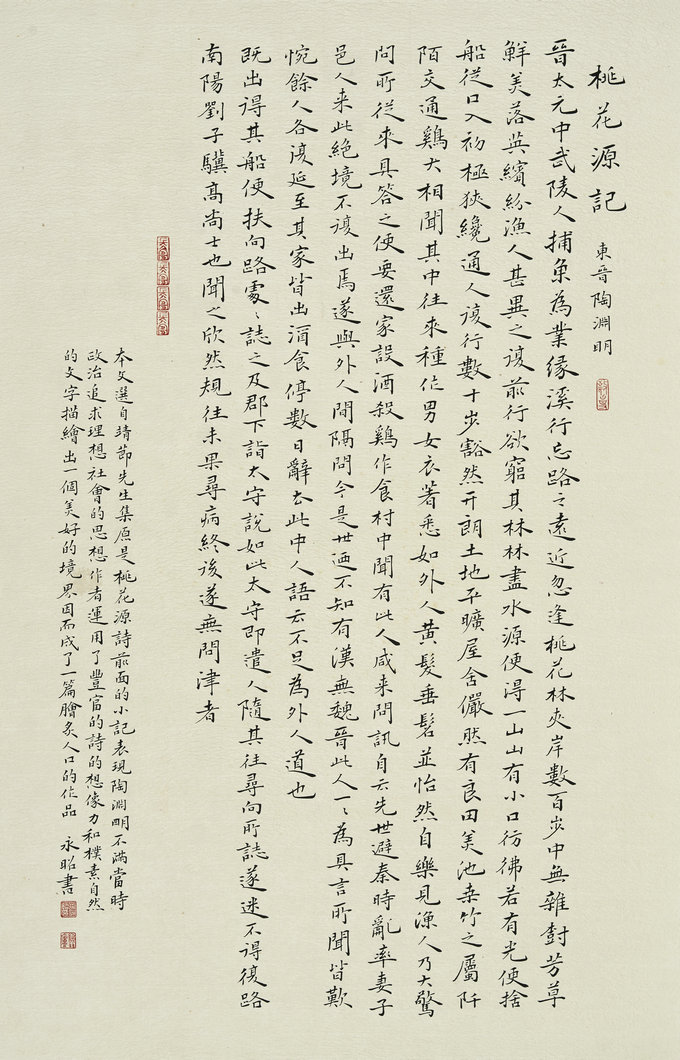 桃花源記
東晉陶淵明
晉太元中武陵人捕魚為業緣溪行忘路之遠近忽逢桃花林夾岸數百步中無雜樹芳草
鮮美落英繽紛漁人甚異之復前行欲窮其林林盡水源便得一山山有小口彷彿若有光便捨
船從口入初極狹纔通人復行數十步豁然開朗土地平曠屋舍儼然有良田美池桑竹之屬阡
陌交通鷄犬相聞其中往來種作男女衣著悉如外人黃髮垂髫並怡然自樂見漁人乃大驚
問所從來具答之便要還家設酒殺鷄作食村中聞有此人咸來問訊自云先世避秦時亂率妻子
邑人來此絕境不復出焉遂與外人間隔問今是世迺不知有漢無魏晉此人一〻為具言所聞皆歎
惋餘人各復延至其家皆出酒食停數日辭去此中人語云不足為外人道也
既出得其船便扶向路處〻誌之及郡下詣太守說如此太守即遣人隨其往尋向所誌遂迷不得復路
南陽劉子驥高尚士也聞之欣然規往未果尋病終後遂無問津者
本文選自靖節先生集原是桃花源詩前面的小記表現陶淵明不滿當時
政治追求理想社會的思想作者運用了豐富的詩的想像力和樸素自然
的文字描繪出一個美好的境界因而成了一篇膾炙人口的作品 永昭書